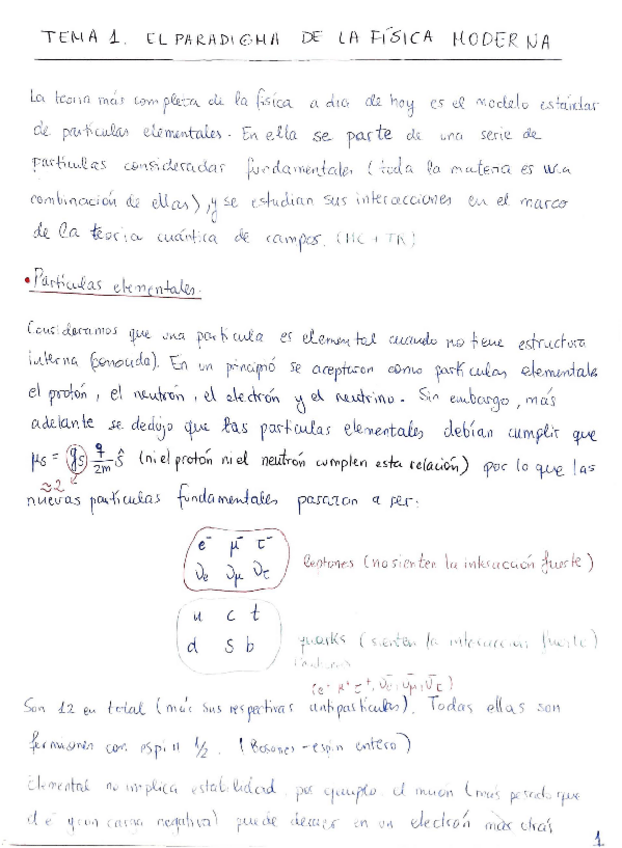 TEMA 1. EL PARADIGMA DE LA FÍSICA MODERNA
La teoría más completa de la física a día de hoy es el modelo estándar
de partículas elementales. En ella se parte de una serie de
partículas consideradas fundamentales (toda la materia es una
combinación de ellas), y se estudian sus interacciones en el marco
de la teoría cuántica de campos. (MC + TR)
• Partículas elementales.
Consideramos que una partícula es elemental cuando no tiene estructura
interna (conocida). En un principio se aceptaron como partículas elementales
el protón, el neutrón, el electrón y el neutrino. Sin embargo, más
adelante se dedujo que las partículas elementales debían cumplir que
μs = gs q/2m ŝ (ni el protón ni el neutrón cumplen esta relación) por lo que las
≈2
nuevas partículas fundamentales pasaron a ser:
e⁻ μ⁻ τ⁻
νe νμ ντ
leptones (no sienten la interacción fuerte)
u c t
d s b
quarks (sienten la interacción fuerte)
Son 12 en total (más sus respectivas antipartículas). Todas ellas son
fermiones con espín 1/2. (Bosones - espín entero)
Elemental no implica estabilidad, por ejemplo, el muón (más pesado que
el e⁻ y con carga negativa) puede decaer en un electrón más otras
1